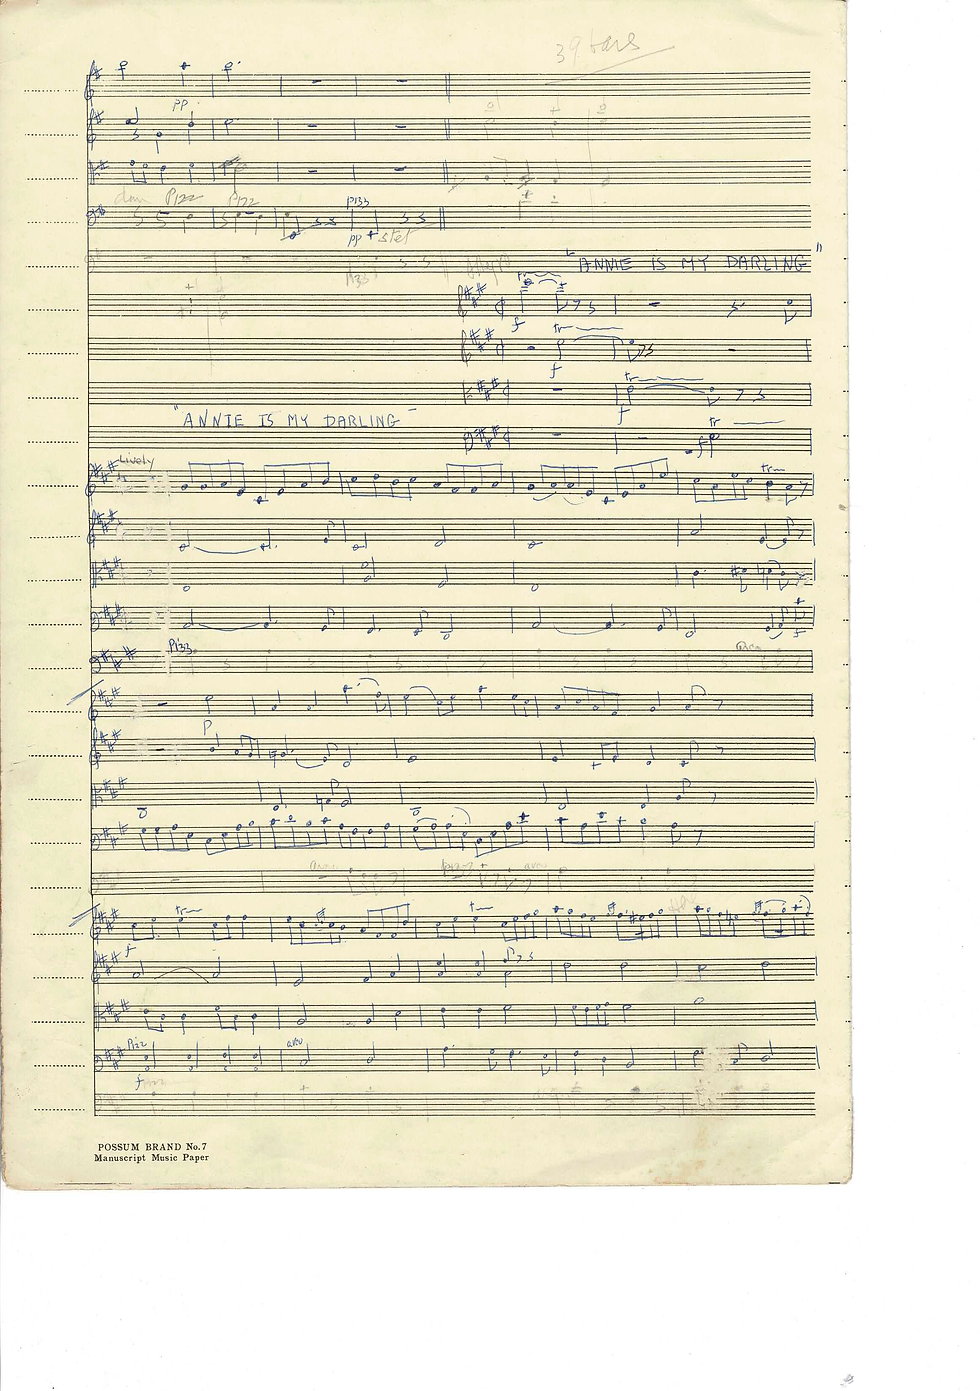 39 bars
pp
Pizz Pizz
Pizz
pp stet
"ANNIE IS MY DARLING"
tr
f
tr
f
tr
f
"ANNIE IS MY DARLING"
tr
f
Lively
tr
f
Pizz
p
arco
tr tr
f
Pizz arco
f
POSSUM BRAND No. 7
Manuscript Music Paper